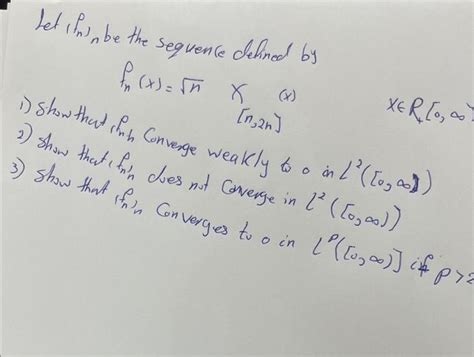 Let (fn)n be the sequence defined by
fn(x) = √n χ[n,2n] (x) x∈R+[0,∞)
1) Show that (fn)n Converge weakly to 0 in L²([0,∞))
2) Show that (fn)n does not Converge in L²([0,∞))
3) Show that (fn)n Converges to 0 in Lᵖ([0,∞)] if p>2